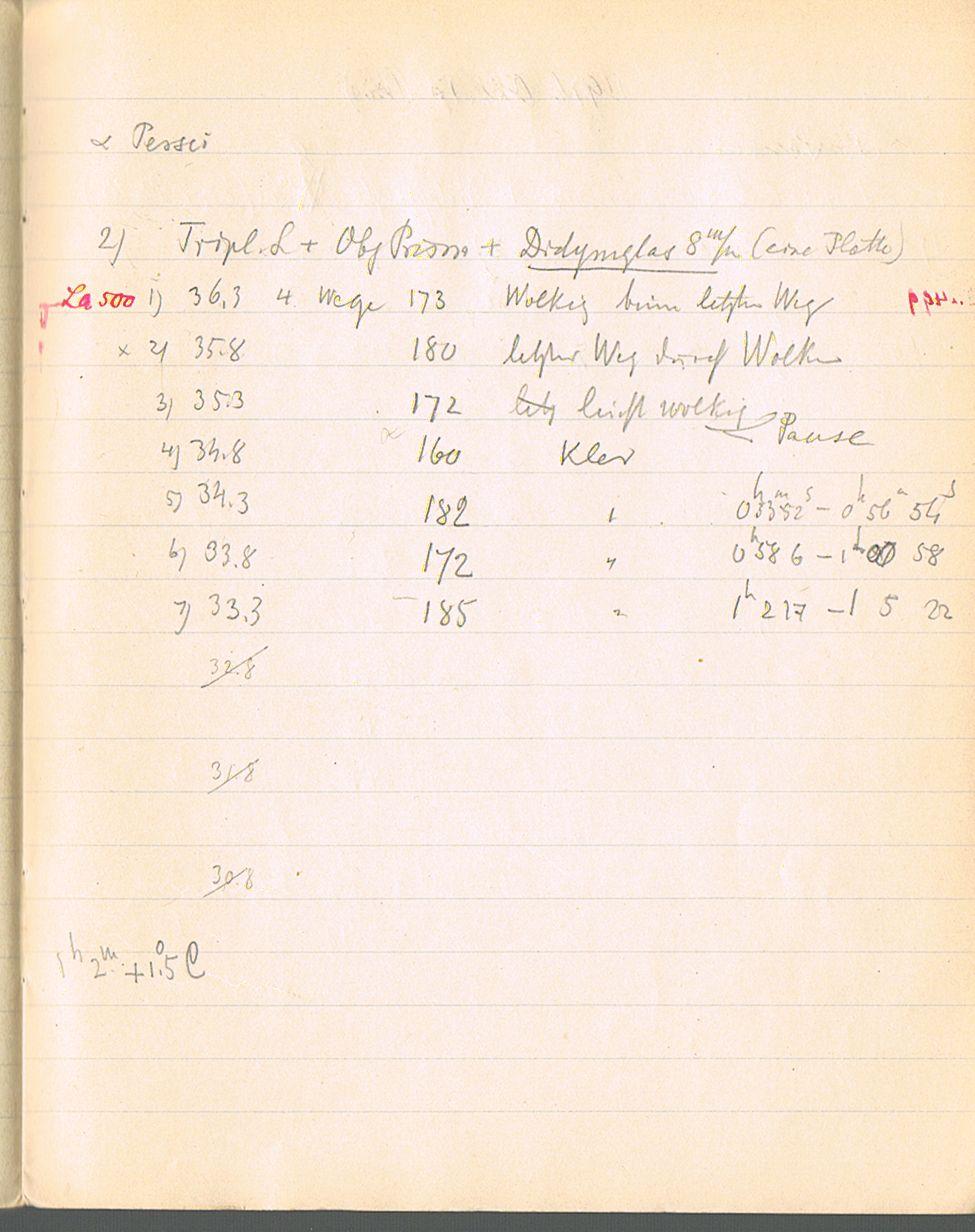 α Persei
2) Tripl. L + Obj Prism + Didymglas 8 m/m (eine Platte)
La 500 1) 36.3 4 Wege 173 Wolkig beim letzten Weg
× 2) 35.8 180 letzter Weg durch Wolken
3) 35.3 172 letz leicht wolkig
Pause
4) 34.8 160 Klar
5) 34.3 182 " 0h 33m 52s – 0h 56m 54s
6) 33.8 172 " 0h 58 6 – 1h 00 58
7) 33.3 185 " 1h 2 17 – 1 5 22
32.8
31.8
30.8
1h 2m +1.5° C